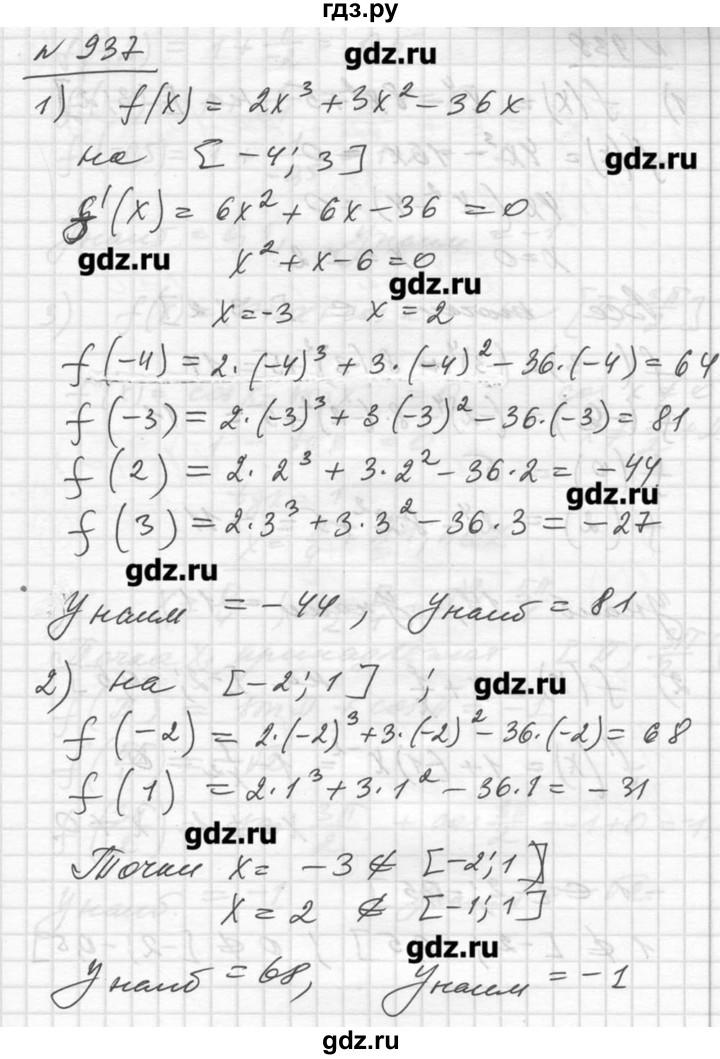 гдз.ру
№ 937
gdz.ru
1) f(x) = 2x³ + 3x² - 36x
на [-4; 3]
gdz.ru
f'(x) = 6x² + 6x - 36 = 0
gdz.ru
x² + x - 6 = 0
gdz.ru
x = -3 x = 2
f(-4) = 2·(-4)³ + 3·(-4)² - 36·(-4) = 64
f(-3) = 2·(-3)³ + 3·(-3)² - 36·(-3) = 81
f(2) = 2·2³ + 3·2² - 36·2 = -44
gdz.ru
f(3) = 2·3³ + 3·3² - 36·3 = -27
gdz.ru
y наим = -44, y наиб = 81
2) на [-2; 1];
gdz.ru
f(-2) = 2·(-2)³ + 3·(-2)² - 36·(-2) = 68
f(1) = 2·1³ + 3·1² - 36·1 = -31
gdz.ru
Точки x = -3 ∉ [-2; 1]
x = 2 ∉ [-1; 1]
gdz.ru
y наиб = 68, y наим = -1
gdz.ru